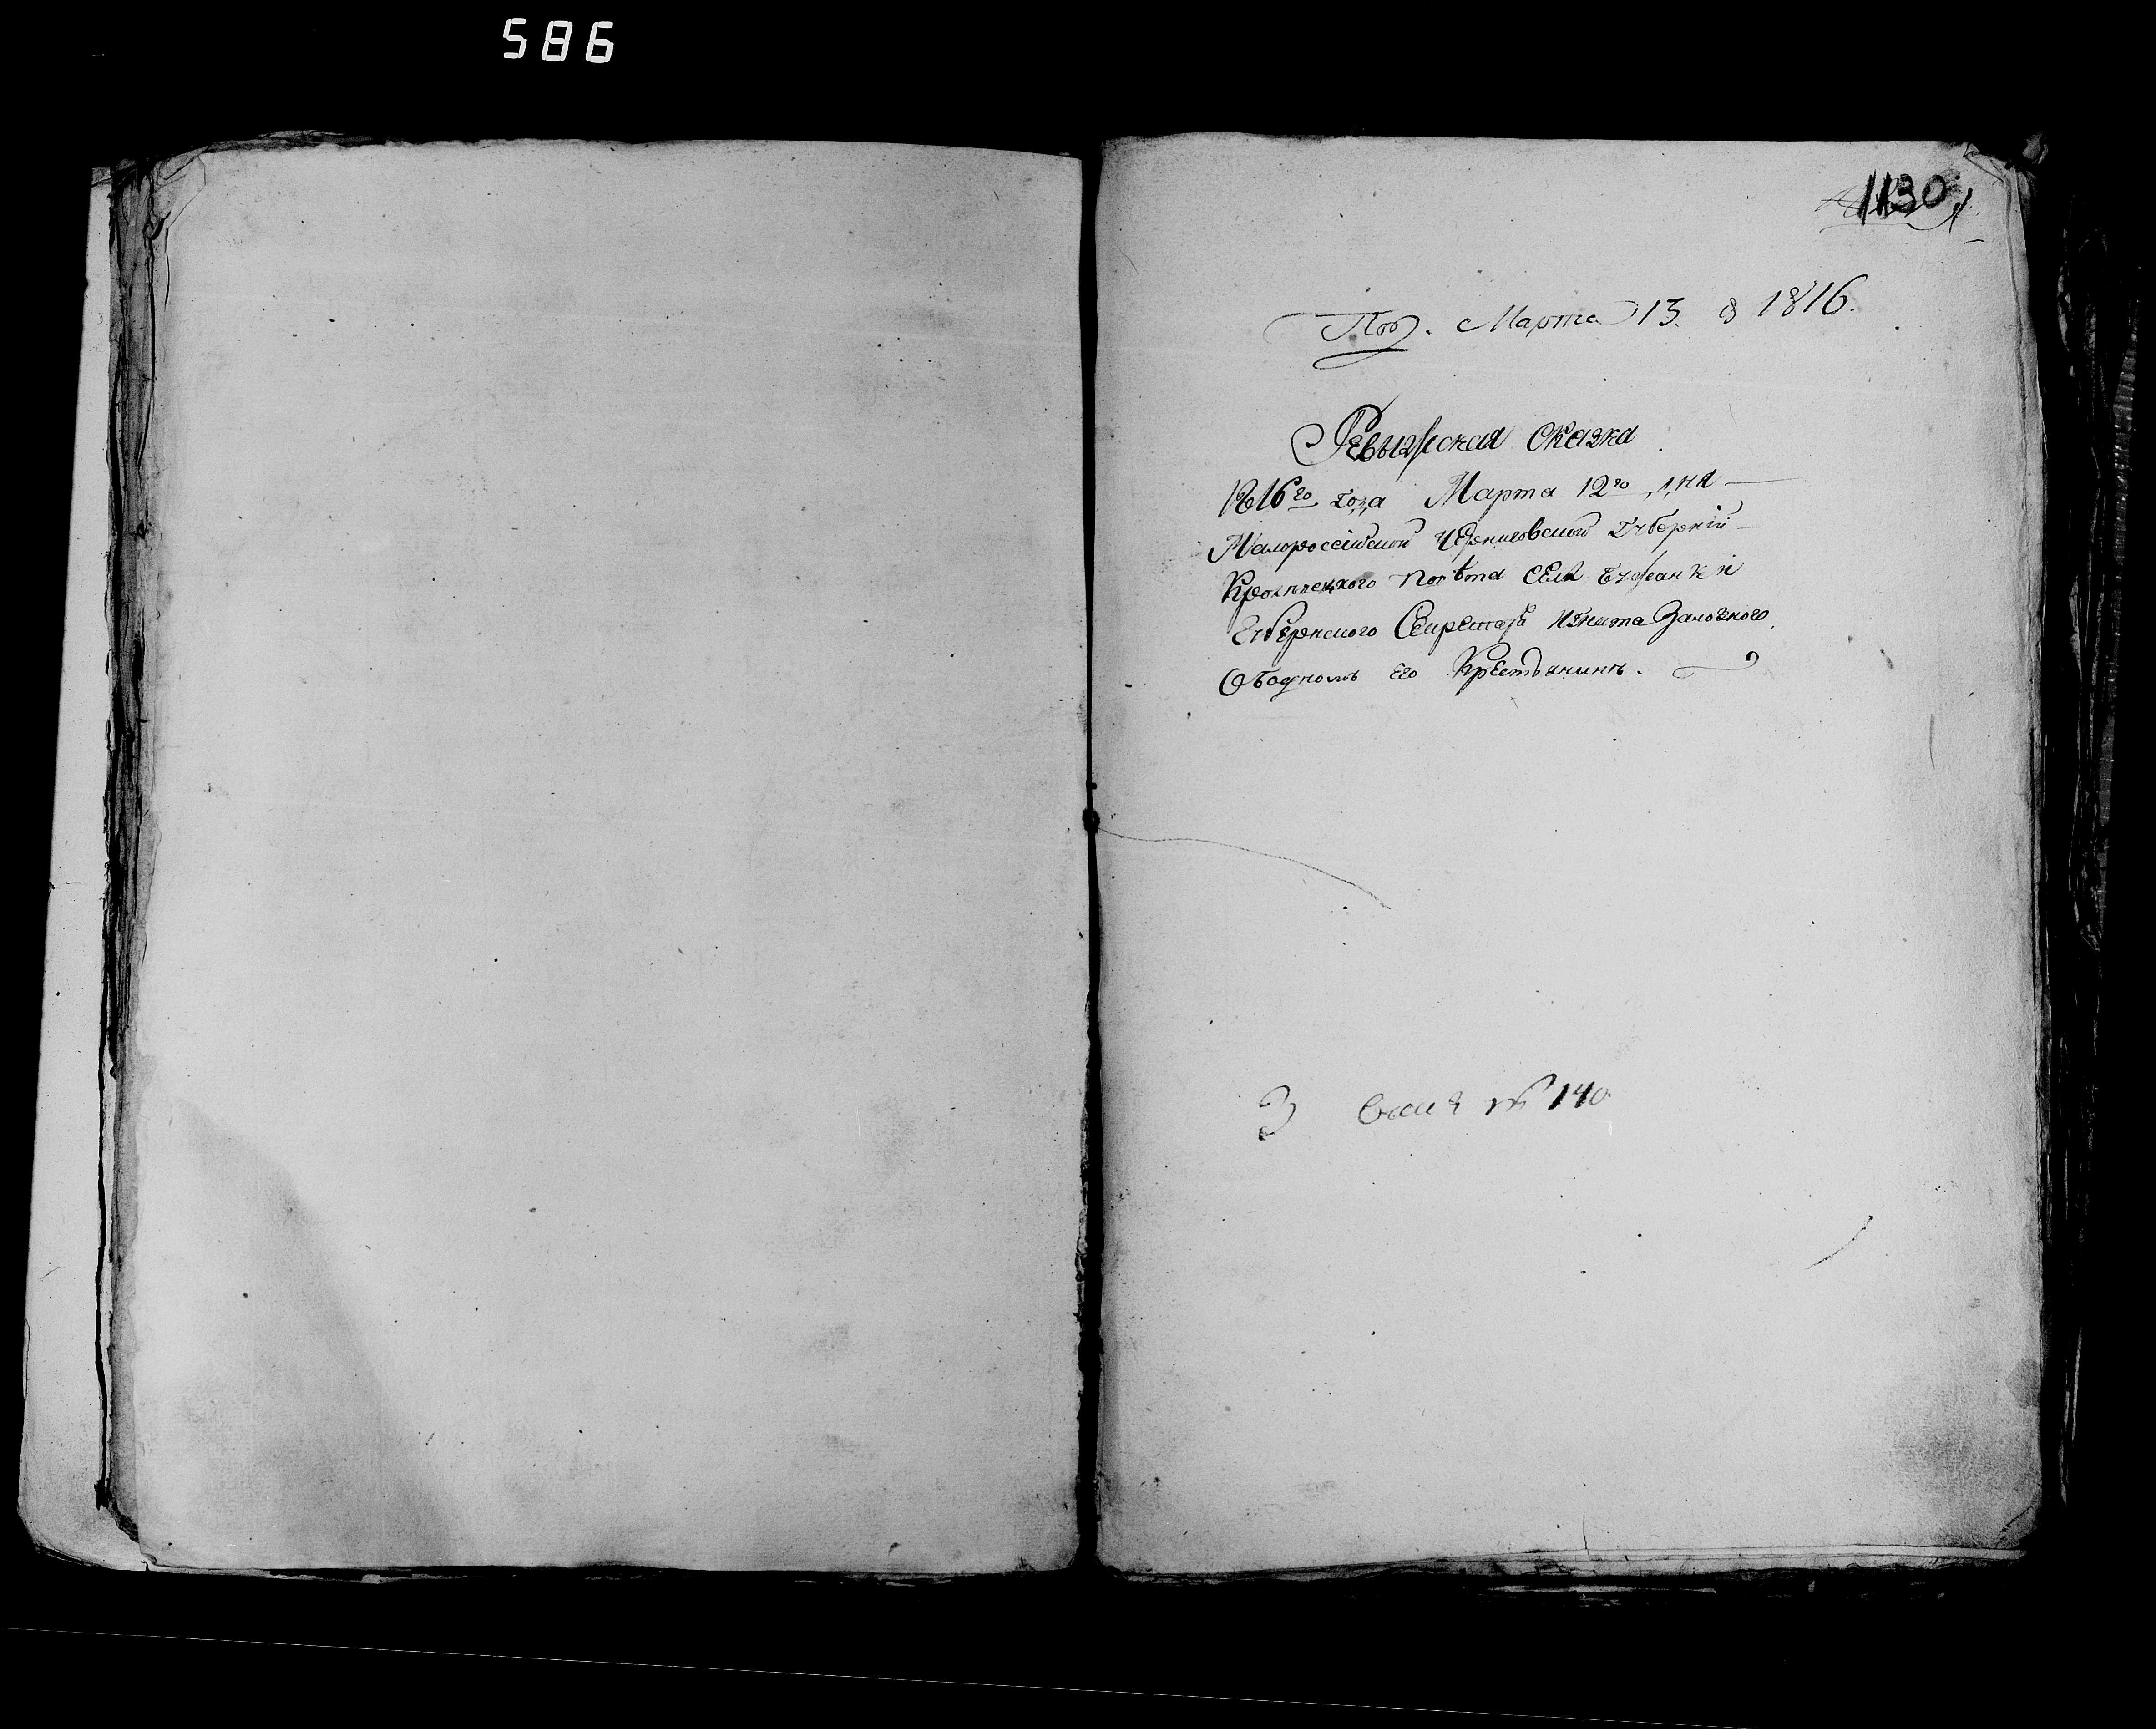 586
1130
Под. Марта 13. д 1816.
Ревизская сказка
1816го года Марта 12го дня
Малороссійской Черниговской Губерніи
Кролевецкого повѣта села Бужанки
Губернского Секретаря Никита Залозного
Ободномъ его Крестьянинѣ.
3 № 140